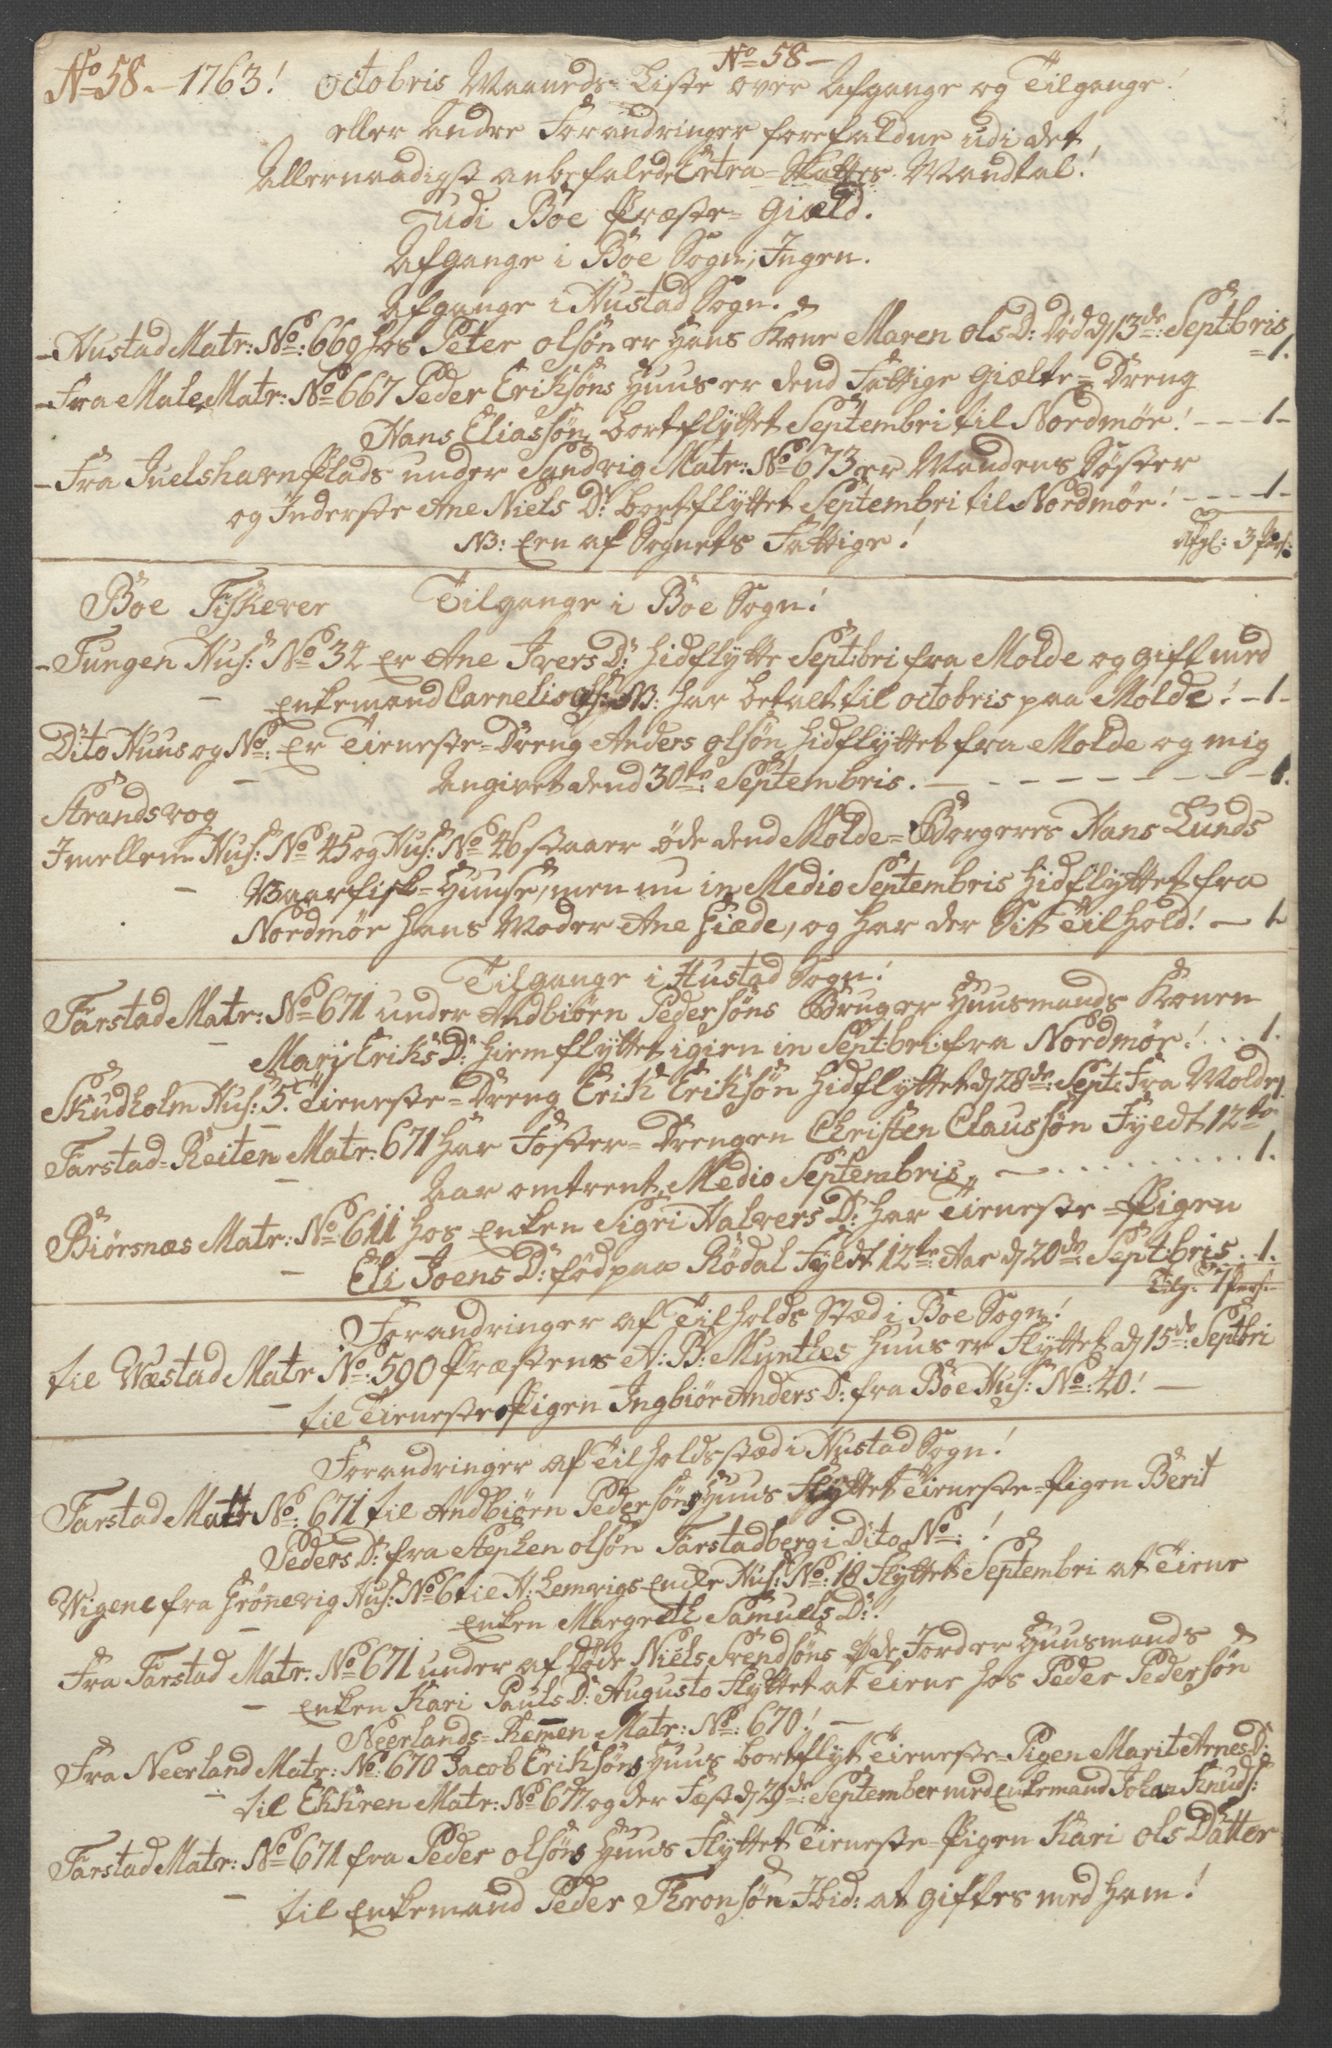 No 58 –
No 58. – 1763! Octobris Maaneds Liste over Afgange og Tilgange!
eller Andre Forandringer forefaldne udi det
Allernaadigst anbefalede Extra-Skattes Mandtal!
Iudi Böe Præste-Giæld.
Afgange i Böe Sogn; Ingen.
Afgange i Hustad Sogn.
– Hustad Matr: No: 669 hos Peter Olsön er Hans Kone Maren Ols D: Död d 13de: Septbris = 1.
– Fra Male Matr: No 667 Peder Eriksöns Huus er dend Fattige Giælte-Dreng
Hans Eliassön bortflyttet Septembri til Nordmör! - - - 1 -
– Fra Juelshavn Plads under Sandvig Matr: No 673 er Mandens Söster
og Inderste Ane Niels D: bortflyttet Septembri til Nordmör! - - - 1 -
NB: Een af Sognets Fattige!
Afg: 3 Pers:
Böe Fiskever Tilgange i Böe Sogn!
– Tungen Hus: No 34 er Ane Ivers D: hidflytte Septbri fra Molde og gift med
Enkemand Carnelis Ols: NB: har betalt til octobris paa Molde! – 1 –
Dito Huus og No: Er Tieneste-Dreng Anders olsön hidflyttet fra Molde og mig
Angivet dend 30te: Septembris. – – – – – – 1.
Strandsvog
Imellem Hus: No 45 og Hus: No 46 staaer öde dend Molde-Borgeres Hans Lunds
Vaarfisk-Huuse, men nu in Medio Septembris hidflyttet fra
Nordmör hans Moder Ane Hiede, og har der Sit Tilhold! – 1.
Tilgange i Hustad Sogn!
Farstad Matr: No 671 under Andbiörn Pedersöns Brug er Huusmands Konen
Marj Eriks D: hiemflyttet igien in Septbri fra Nordmör! . . . 1.
Skudholm Hus: 5. Tieneste-Dreng Erik Eriksön hidflyttet d 28de: Sept: Fra Molde 1
Farstad-Reiten Matr: 671 har Foster-Drengen Christen Claussön Fyldt 12te
Aar omtrent Medio Septembris, – . . . . . . . . . 1.
Biörsnæs Matr: No 611 hos Enken Sigri Halvers D: har Tieneste-Pigen
Eli Joens D: föd paa Rödal Fyldt 12te: Aar d 20de: Septbris. 1.
Tilg: 7 Pers:
Forandringer af Tilholds Stæd i Böe Sogn!
til Wæstad Matr No: 590 Præstens A: B: Mynthes Huus er Flyttet d 15de: Septbri
til Tieneste Pigen Ingbiör Anders D: fra Böe Hus: No: 40! –
Forandringer af Tilholdsstæd i Hustad Sogn!
Farstad Matr No: 671 til Andbiörn Pedersöns Huus Flyttet Tieneste-Pigen Berit
Peders D: fra Stephen olsön Farstadberg i Dito No: !
Wigene fra Grönevig Hus: No 6 til A: Lemvigs Enke Hus: No: 18 Flyttet Septembri at Tiene
Enken Margreth Samuels D:!
Fra Farstad Matr: No 671 under af Döde Niels Svendsöns öde Jorder Huusmands
Enken Kari Pauls D: Augusto Flyttet at Tiene hos Peder Pedersön
Neerlands-Remen Matr: No: 670! –
Fra Neerland Matr: No: 670 Jacob Eriksöns Huus bortflyt Tieneste-Pigen Marit Arnes D:
til Ekkren Matr: No 677 og der Fæst d 29de: September med Enkemand Johan Knuds:
Farstad Matr: No 671 fra Peder olsöns Huus Flyttet Tieneste-Pigen Kari ols Datter
til Enkemand Peder Thronsön Ibid: at giftes med ham!